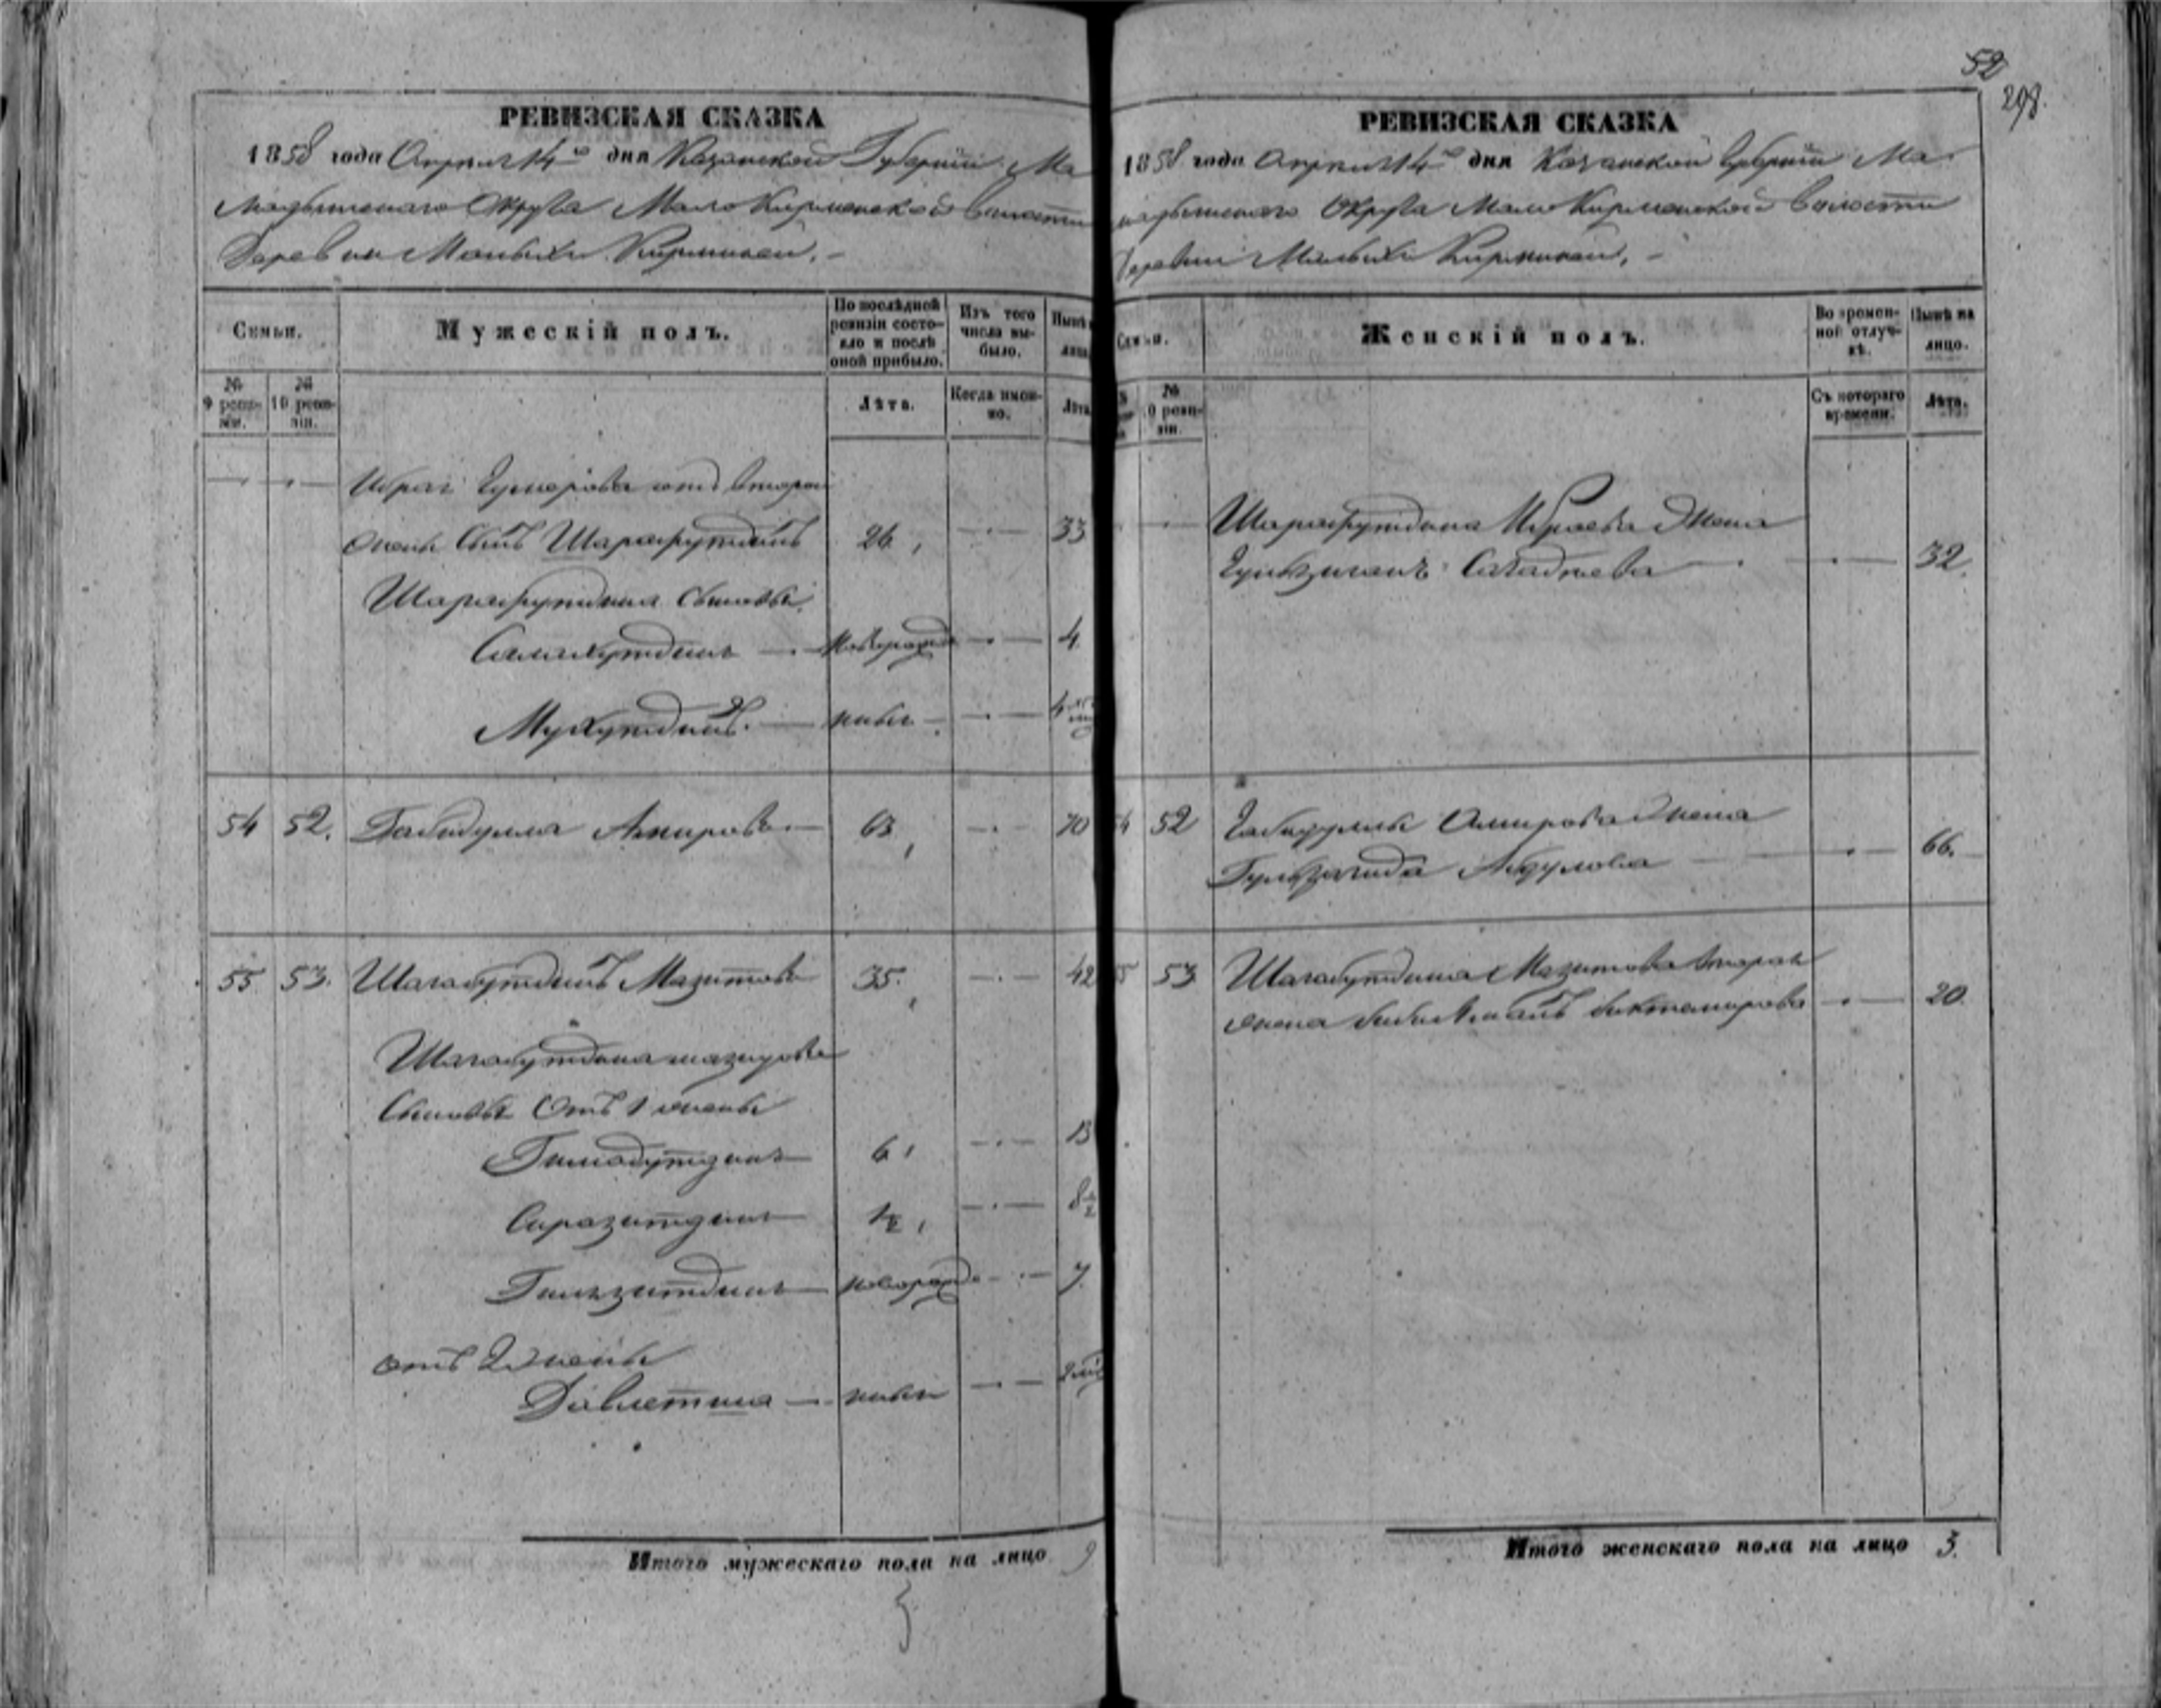 52
298.
РЕВИЗСКАЯ СКАЗКА
1858 года Апреля 14го дня Казанской Губернии Ма
мадышскаго Округа Мало Кирменской волости
Деревни Малыхъ Кирменей. –
Семьи.
Мужескій полъ.
По послѣдней ревизіи состо-
яло и послѣ оной прибыло.
Изъ того числа вы-
было.
Нынѣ
лицо
№ 9 реви-
зіи.
№ 10 реви-
зіи.
Лѣта.
Когда имен-
но.
Лѣта
Ибрая Гумерова отъ второй
жены сынъ Шарафутдинъ 26 33
Шарафутдина сыновья
Салахутдинъ — новорожд 4
Мухутдинъ. — новъ 4
54 52. Габидулла Амировъ — 63 70
55 53. Шагабутдинъ Мазитовъ 35. 42
Шагабутдина Мазитова
сыновья отъ 1 жены
Гимадутдинъ 6 13
Сиразитдинъ ½ 8½
Гильзитдинъ новорожд 7
отъ 2 жены
Давлетша — новъ
Итого мужескаго пола на лицо 9
РЕВИЗСКАЯ СКАЗКА
1858 года Апреля 14го дня Казанской Губернии Ма
мадышскаго Округа Мало Кирменской волости
Деревни Малыхъ Кирменей, –
Семьи.
Женскій полъ.
Во времен-
ной отлуч-
кѣ.
Нынѣ на
лицо.
№ 10 реви-
зіи.
Съ котораго
времени.
Лѣта.
Шарафутдина Ибраева жена
32.
54 52 Габидуллы Амирова жена
Гульзагида Абдулова 66.
55 53 Шагабутдина Мазитова вторая
жена Биктемирова 20.
Итого женскаго пола на лицо 3.